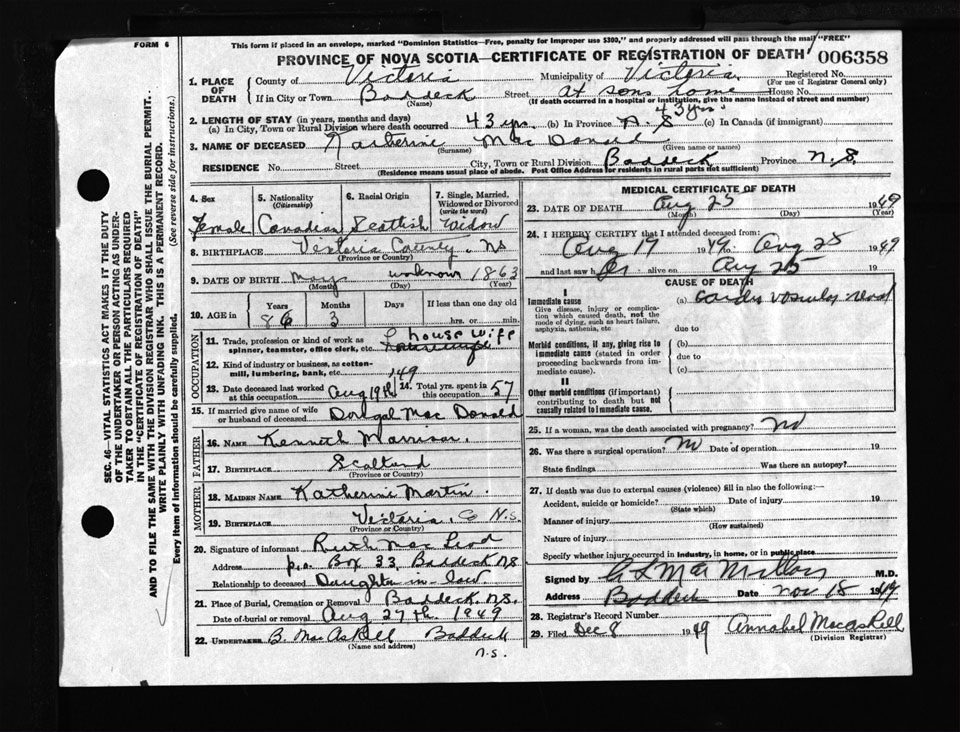 FORM 6
This form if placed in an envelope, marked "Dominion Statistics—Free, penalty for improper use $300," and properly addressed will pass through the mail "FREE"
PROVINCE OF NOVA SCOTIA—CERTIFICATE OF REGISTRATION OF DEATH 006358
SEC. 46—VITAL STATISTICS ACT MAKES IT THE DUTY
OF THE UNDERTAKER OR PERSON ACTING AS UNDER-
TAKER TO OBTAIN ALL THE PARTICULARS REQUIRED
IN THE "CERTIFICATE OF REGISTRATION OF DEATH"
AND TO FILE THE SAME WITH THE DIVISION REGISTRAR WHO SHALL ISSUE THE BURIAL PERMIT.
WRITE PLAINLY WITH UNFADING INK. THIS IS A PERMANENT RECORD.
Every item of Information should be carefully supplied. (See reverse side for instructions.)
1. PLACE OF DEATH
County of Victoria Municipality of Victoria. Registered No.
(For use of Registrar General only)
If in City or Town Baddeck Street at sons home House No.
(Name) (If death occurred in a hospital or institution, give the name instead of street and number)
2. LENGTH OF STAY (in years, months and days) 43 yrs.
(a) In City, Town or Rural Division where death occurred 43 yrs. (b) In Province N.S (c) In Canada (if immigrant)
3. NAME OF DECEASED Katherine Mac Donald
(Surname) (Given name or names)
RESIDENCE No. Street City, Town or Rural Division Baddeck Province N.S.
(Residence means usual place of abode. Post Office Address for residents in rural parts not sufficient)
4. Sex 5. Nationality (Citizenship) 6. Racial Origin 7. Single, Married, Widowed or Divorced (write the word)
Female Canadian Scottish Widow
8. BIRTHPLACE Victoria County, NS
(Province or Country)
9. DATE OF BIRTH May unknown 1863
(Month) (Day) (Year)
10. AGE in Years Months Days If less than one day old
86 3 hrs. or min.
OCCUPATION
11. Trade, profession or kind of work as spinner, teamster, office clerk, etc. housewife
12. Kind of industry or business, as cotton-mill, lumbering, bank, etc.
149
13. Date deceased last worked at this occupation Aug 19th 14. Total yrs. spent in this occupation 57
15. If married give name of wife or husband of deceased Dougal Mac Donald
FATHER
16. NAME Kenneth Morrison.
17. BIRTHPLACE Scotland
(Province or Country)
MOTHER
18. MAIDEN NAME Katherine Martin.
19. BIRTHPLACE Victoria, Co N.S.
(Province or Country)
20. Signature of informant Ruth Mac Leod
Address p.o. Box 33, Baddeck NS
Relationship to deceased Daughter-in-law
21. Place of Burial, Cremation or Removal Baddeck N.S.
Date of burial or removal Aug 27th 1949
22. UNDERTAKER B. MacAskill Baddeck
(Name and address) N.S.
MEDICAL CERTIFICATE OF DEATH
23. DATE OF DEATH Aug 25 1949
(Month) (Day) (Year)
24. I HEREBY CERTIFY that I attended deceased from:
Aug 17 1949 to Aug 25 1949
and last saw her alive on Aug 25 19
CAUSE OF DEATH
I
Immediate cause (a) cardio vascular renal
Give disease, injury or complication which caused death, not the mode of dying, such as heart failure, asphyxia, asthenia, etc
due to
Morbid conditions, if any, giving rise to immediate cause (stated in order proceeding backwards from immediate cause). (b)
due to
(c)
II
Other morbid conditions (if important) contributing to death but not causally related to Immediate cause.
25. If a woman, was the death associated with pregnancy? No
26. Was there a surgical operation? No Date of operation 19
State findings Was there an autopsy?
27. If death was due to external causes (violence) fill in also the following:—
Accident, suicide or homicide? Date of injury 19
(State which)
Manner of injury
(How sustained)
Nature of injury
Specify whether injury occurred in industry, in home, or in public place
Signed by C L MacMillan M.D.
Address Baddeck Date Nov 18 1949
28. Registrar's Record Number
29. Filed Dec 8 1949 Annabel Macaskill
(Division Registrar)